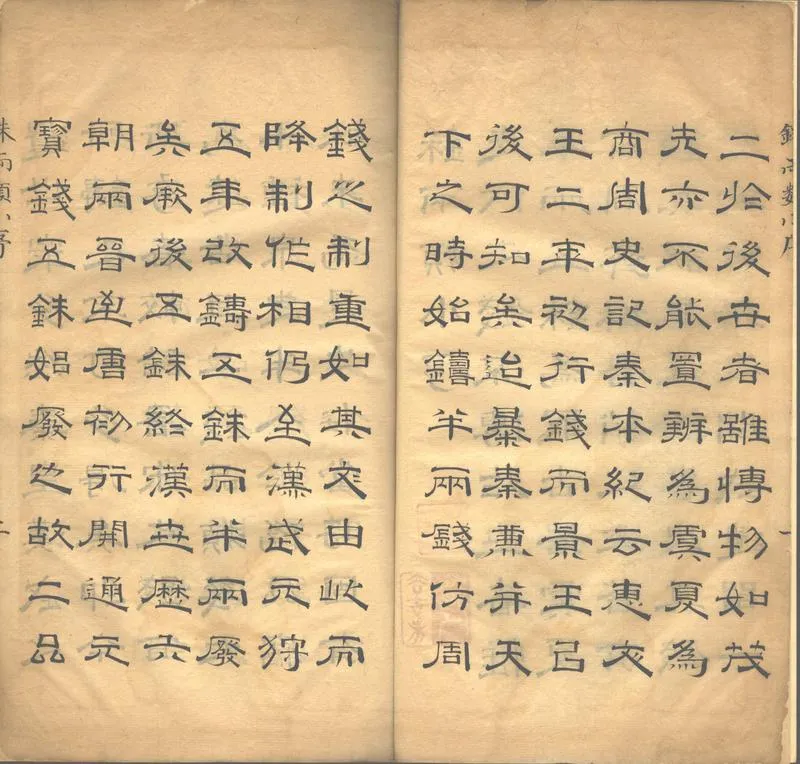 二後古者雖博物如茂
先亦不能置辨為虞夏為
商周史記秦本紀云惠文
王二年初行錢而景王已
後可知矣迨暴秦兼并天
下之時始鑄半兩錢仿周
錢之制重如其文由此而
降制作相仍至漢武元狩
五年改鑄五銖而半兩廢
矣厥後五銖終漢世歷六
朝兩晉至唐初行開通元
寶錢五銖始廢之故二品
銖兩類小序 二